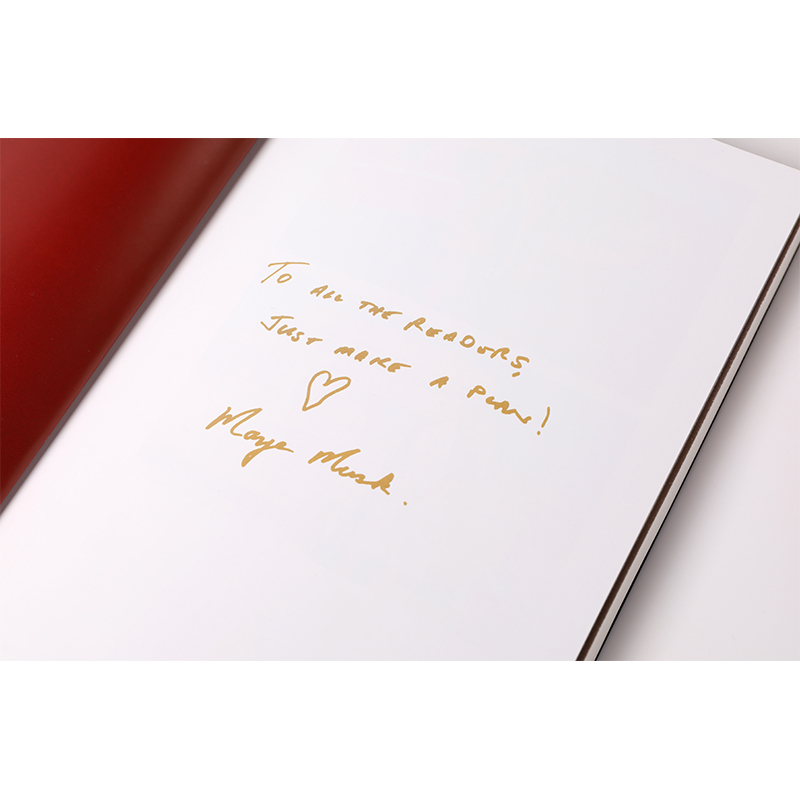 TO ALL THE READERS,
JUST MAKE A PLAN!
Maye Musk.